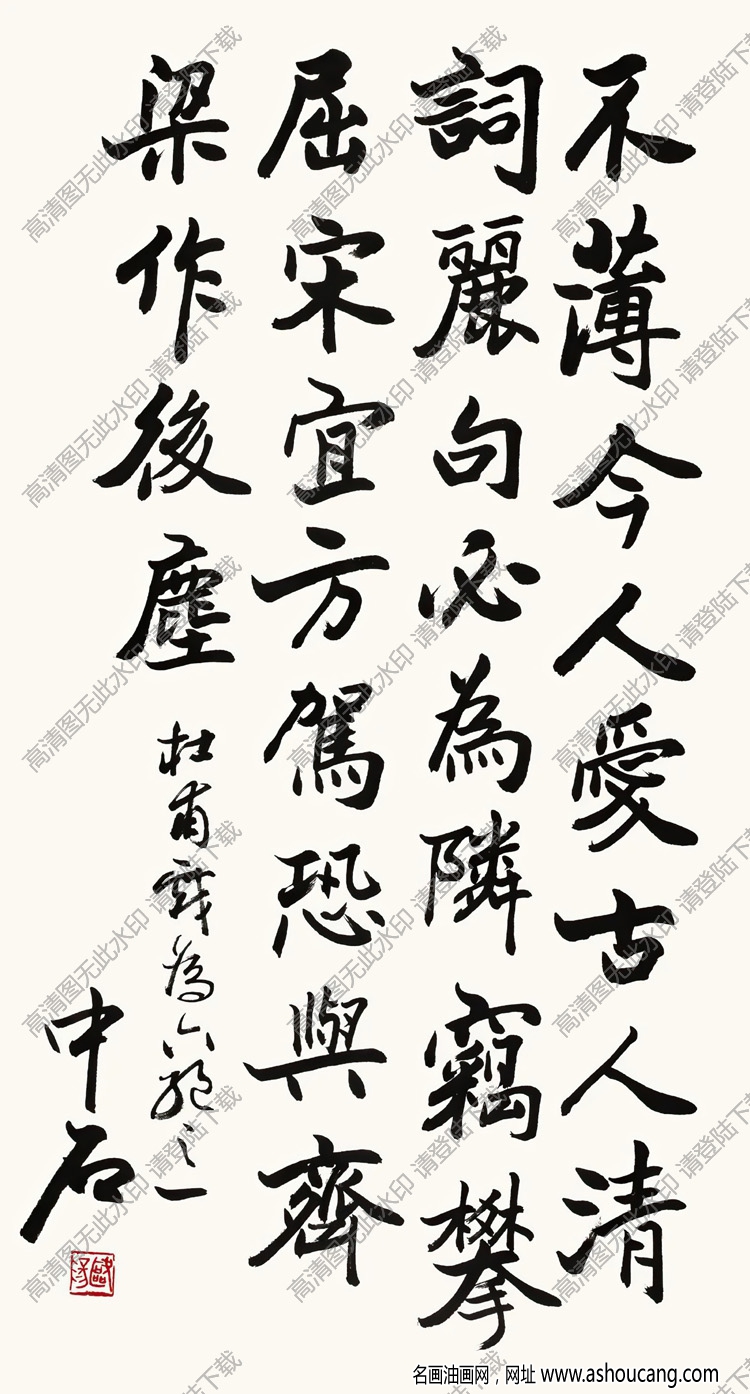 不薄今人愛古人清
詞麗句必為隣竊攀
屈宋宜方駕恐與齊
梁作後塵
杜甫戲為六絕之一
中石
高清图无此水印 请登陆下载
名画油画网，网址 www.ashoucang.com